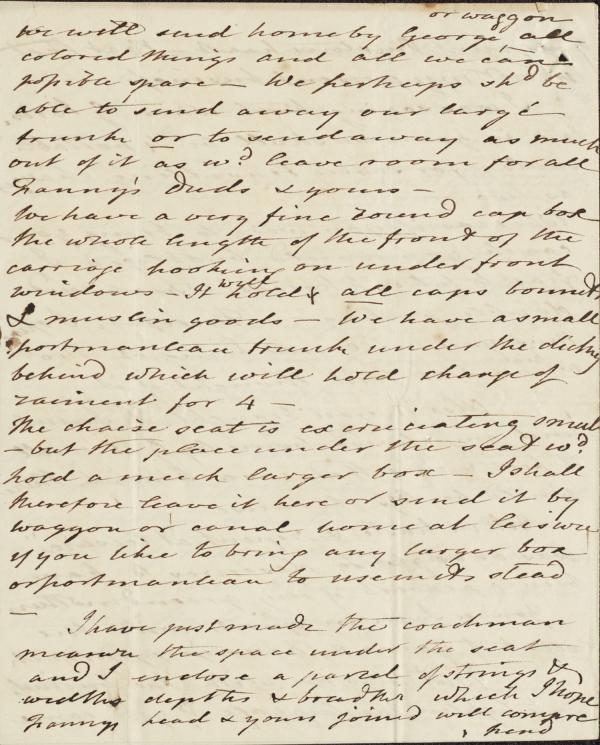 or waggon
we will send home by George all
colored things and all we can
possible spare — We perhaps shd be
able to send away our large
trunk or to send away as much
out of it as wd leave room for all
Fanny's Duds & yours —
We have a very fine round cap box
the whole length of the front of the
carriage hooking on under front
windows — It will hold all caps bonnets
& muslin goods — We have a small
portmanteau trunk under the dickey
behind which will hold change of
raiment for 4 —
The chaise seat is excruciating small
— but the place under the seat wd
hold a much larger box — I shall
therefore leave it here or send it by
waggon or canal home at leisure
if you like to bring any larger box
or portmanteau to use in its stead
—
I have just made the coachman
measure the space under the seat
and I enclose a parcel of strings &
widths depths & breadths which I hope
Fannys head & yours joined will compre
hend